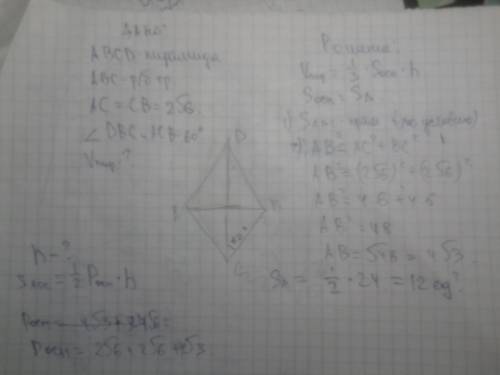 Дано:
ABCD пирамида
ABC - р/б тр.
AC = CB = 2√6
∠DBC = ACB = 60°
Vпир. ?
D
h - ?
Sбок = 1/2 Pосн · h
Pосн = 2√6 + 2√6 + 4√3
Решение:
Vпир = 1/3 · Sосн · h
Sосн = S△
AB² = AC² + BC²
AB² = (2√6)² + (2√6)²
AB² = 4·6 + 4·6
AB² = 48
AB = √48 = 4√3
S△ = 1/2 · 24 = 12 ед²